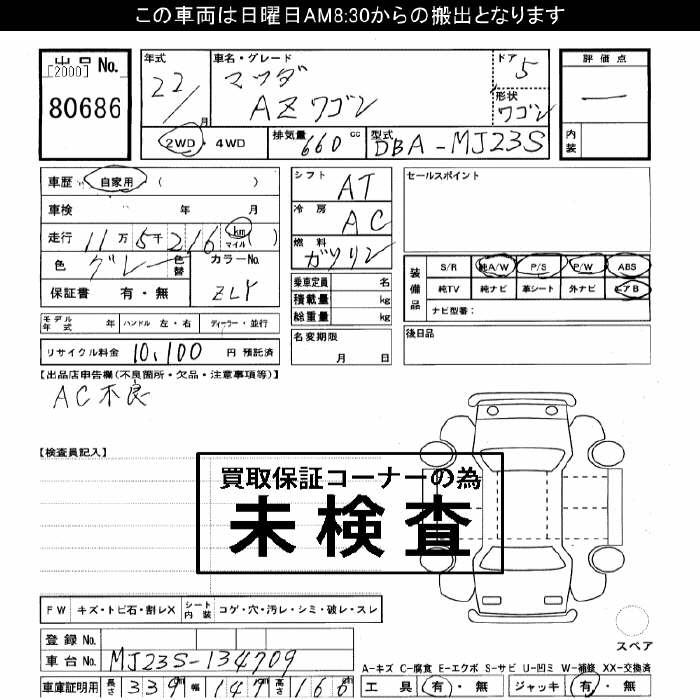 この車両は日曜日AM8:30からの搬出となります
出品No.
[2000]
80686
年式
22/
月
車名・グレード
マツダ
AZワゴン
ドア
5
形状
ワゴン
評価点
―
内装
2WD・4WD
排気量
660
cc
型式
DBA-MJ23S
車歴
自家用
(　)
車検　年　月
走行
11万5千216
km
マイル
(　)
色
グレー
色替
カラーNo.
ZLY
保証書　有・無
シフト
AT
冷房
AC
燃料
ガソリン
乗車定員　名
積載量　kg
総重量　kg
セールスポイント
装備品
S/R　純A/W　P/S　P/W　ABS
純TV　純ナビ　革シート　外ナビ　エアB
ナビ型番:
モデル年式　年　ハンドル　左・右　ディーラー・並行
リサイクル料金　10,100　円　預託済
名変期限
月　日
後日品
【出品店申告欄(不良箇所・欠品・注意事項等)】
AC不良
【検査員記入】
買取保証コーナーの為
未検査
FW　キズ・トビ石・割レX　シート内装　コゲ・穴・汚レ・シミ・破レ・スレ
登録No.
車台No.　MJ23S-134709
スペア
A-キズ C-腐食 E-エクボ S-サビ U-凹ミ W-補修 XX-交換済
車庫証明用　長さ　339　幅　147　高さ　166
工具　有・無　ジャッキ　有・無